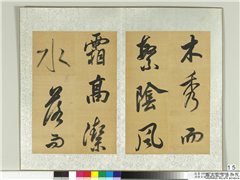 木秀而
繁陰風
霜高潔
水落而